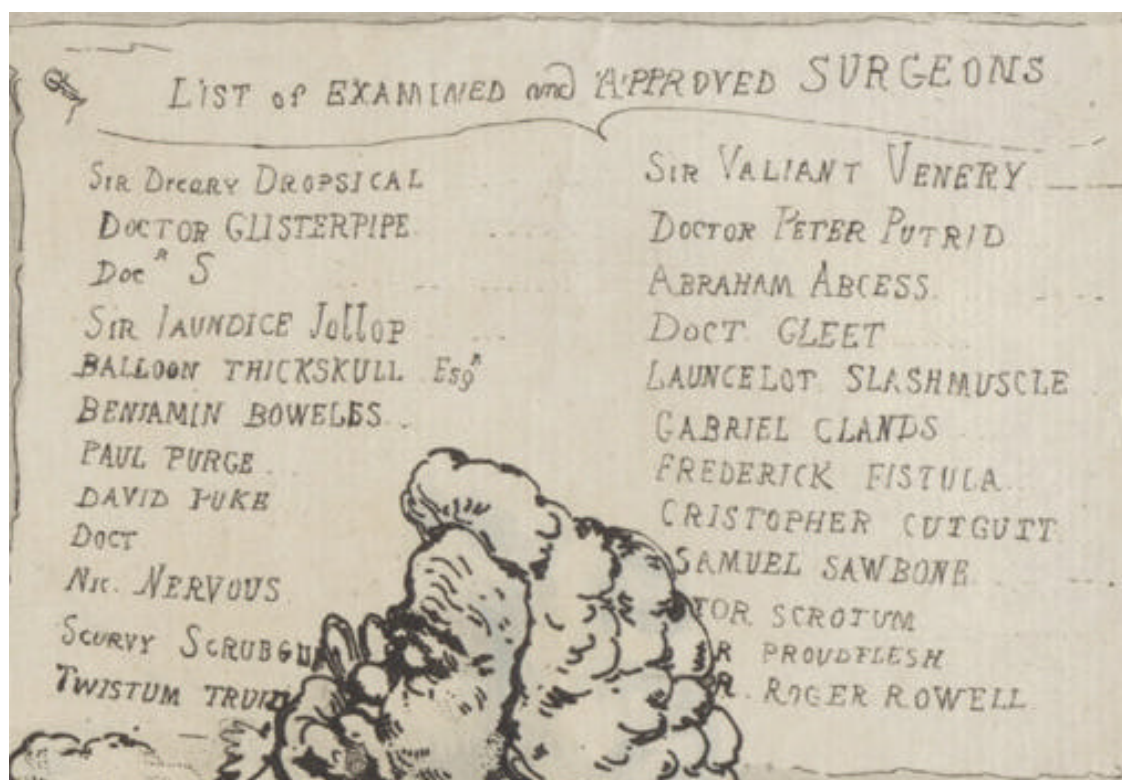 LIST of EXAMINED and APPROVED SURGEONS
SIR DREARY DROPSICAL
DOCTOR GLISTERPIPE
Doc^R S
SIR JAUNDICE Jollop
BALLOON THICKSKULL Esq^R
BENJAMIN BOWELSS
PAUL PURGE
DAVID PUKE
DOCT
NIC. NERVOUS
SCURVY
TWISTUM
SIR VALIANT VENERY
DOCTOR PETER PUTRID
ABRAHAM ABCESS
DOCT. GLEET
LAUNCELOT SLASHMUSCLE
GABRIEL GLANDS
FREDERICK FISTULA
CRISTOPHER CUTGUTT
SAMUEL SAWBONE
TOR SCROTUM
R PROUDFLESH
R. ROGER ROWELL